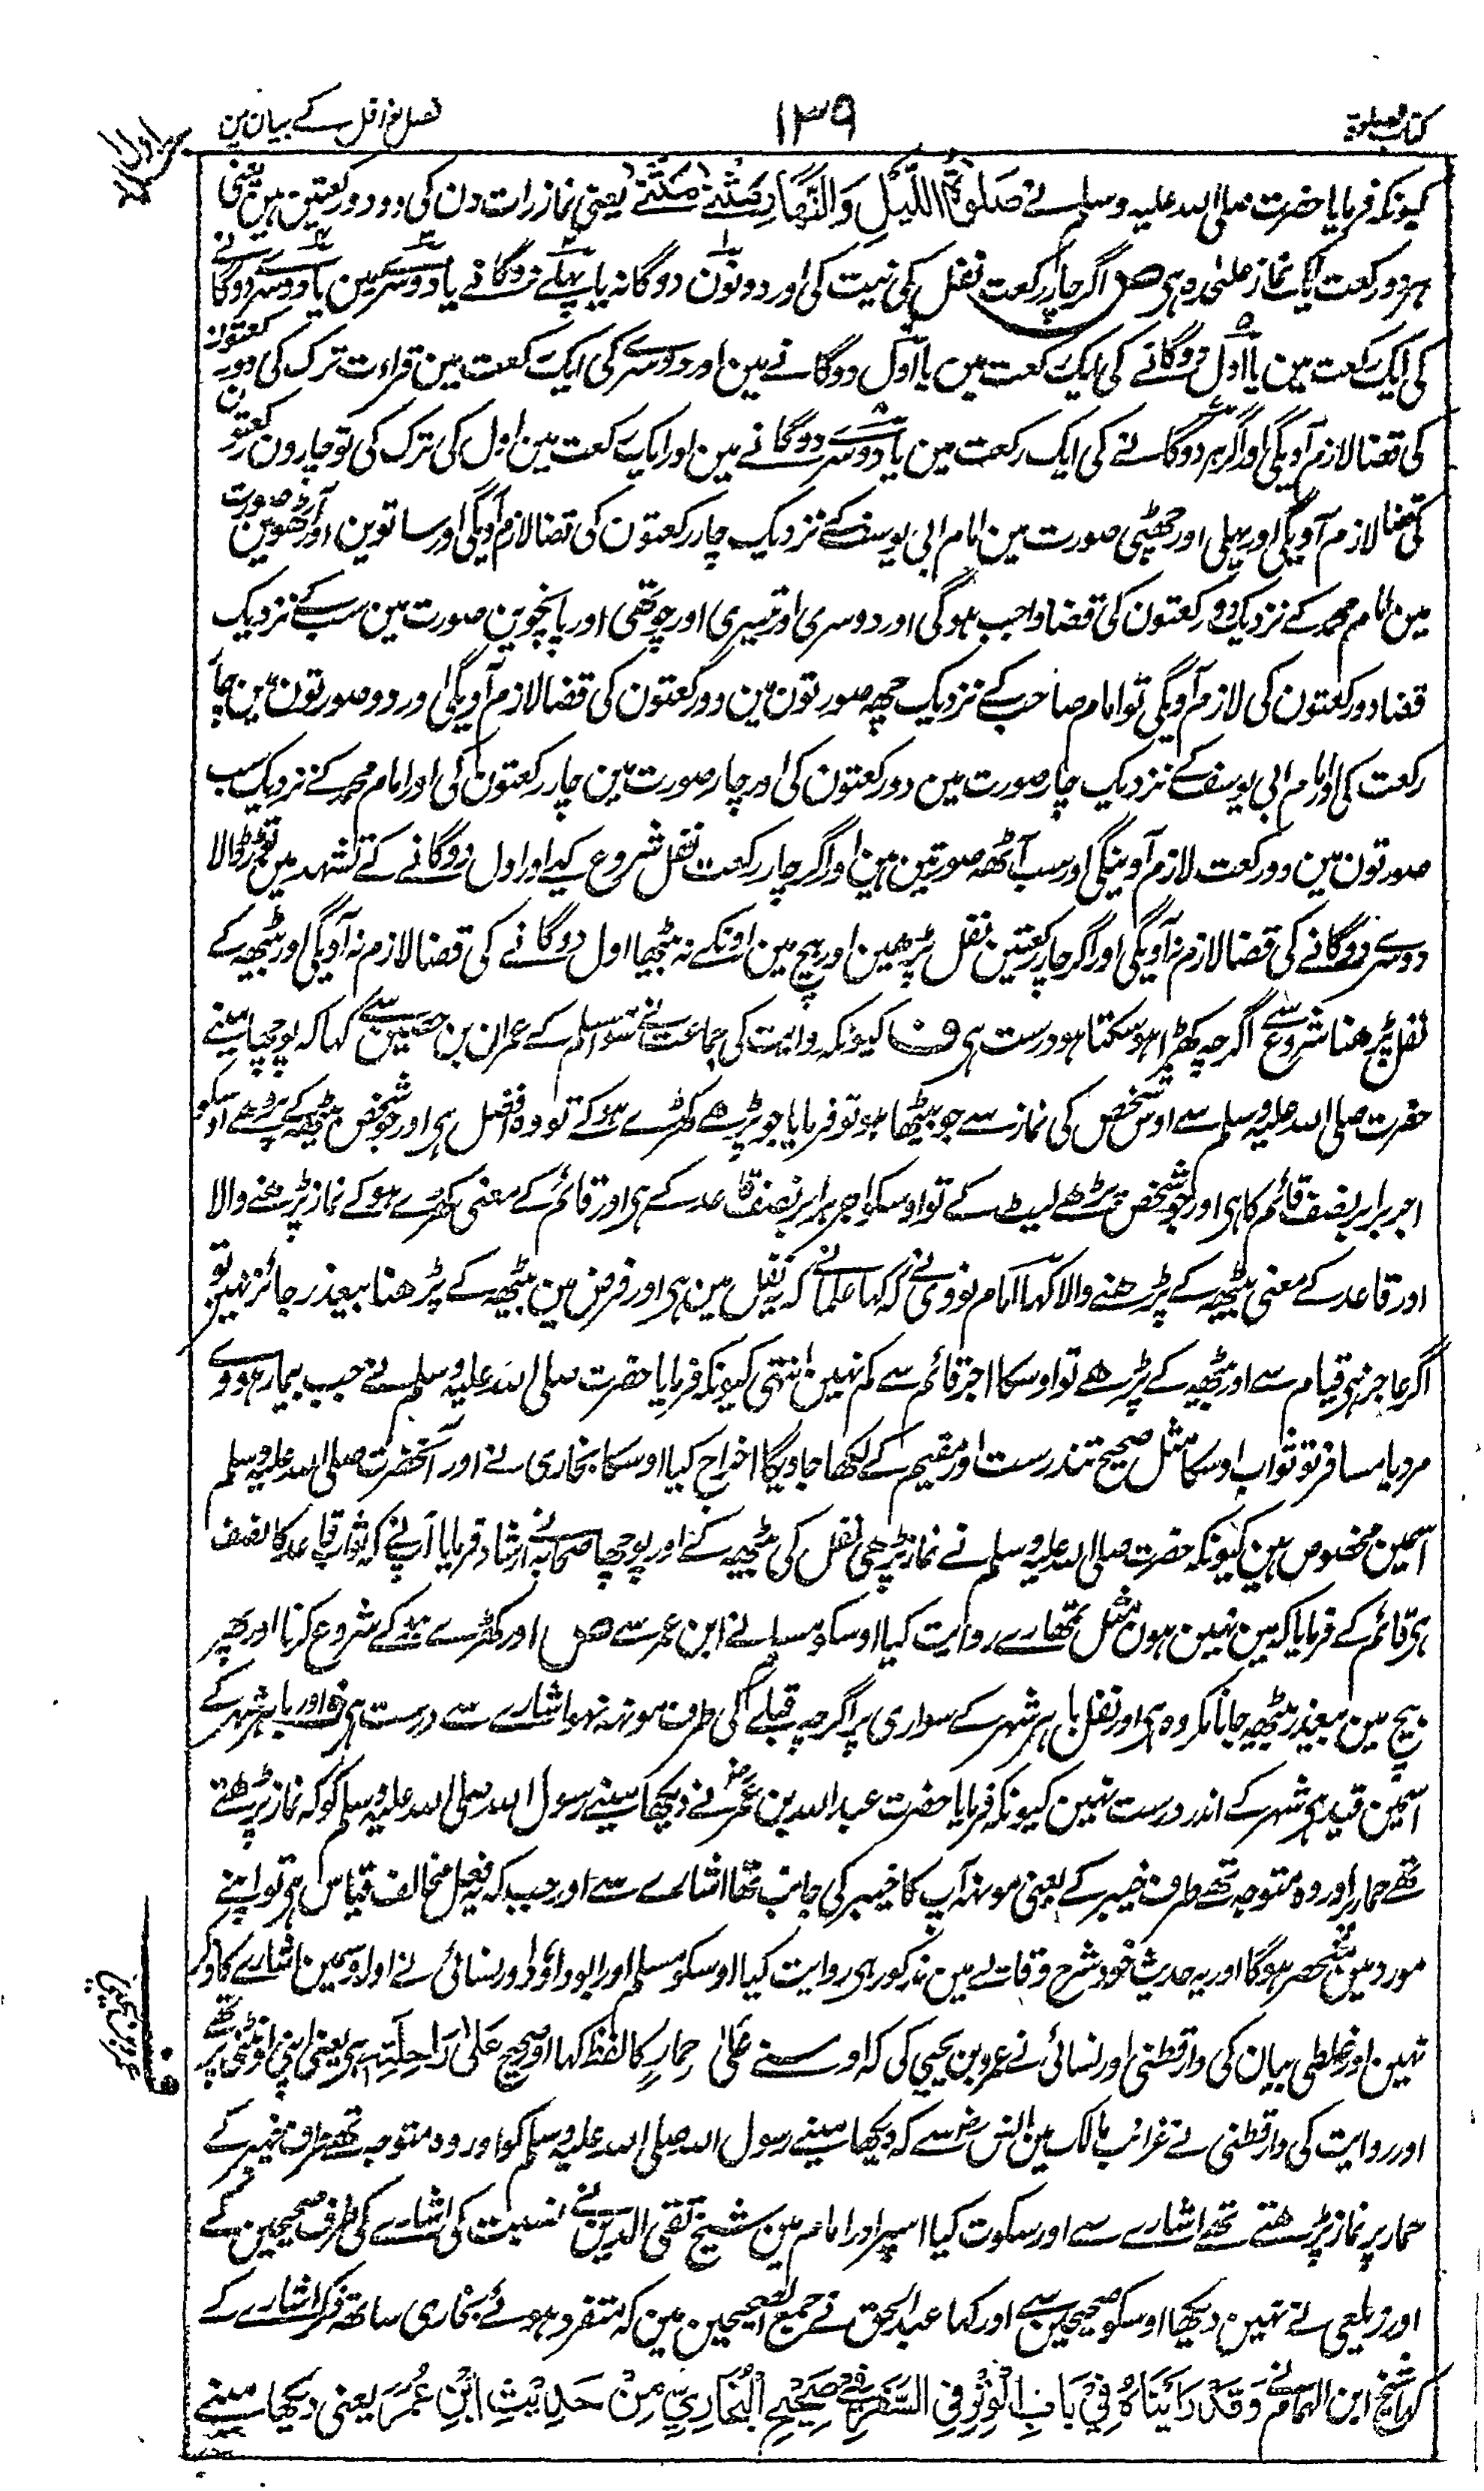 کتاب الصلوة
۱۳۹
فصل نوافل کے بیان مین
جلد اول
کیونکہ فرمایا حضرت صلی اللہ علیہ وسلم نے صَلٰوةُ اللَّیْلِ وَالنَّھَارِ مَثْنٰے مَثْنٰے یعنی نماز رات دن کی دو دو رکعتین ہین یعنی
ہر دو رکعت ایک نماز علٰحدہ ہی ص اگر چار رکعت نفل کی نیت کی اور دونون دوگانہ یا پہلے دوگانے یا دوسرے مین یا دوسرے دوگانے
کی ایک رکعت مین یا اول دوگانے کی ایک رکعت مین یا اول دوگانے مین اور دوسرے کی ایک رکعت مین قراءت ترک کی دو رکعتون
کی قضا لازم آویگی اور اگر ہر دوگانے کی ایک رکعت مین یا دوسرے دوگانے مین اور ایک رکعت مین اول کی ترک کی تو چارون رکعتون
کی قضا لازم آویگی اور پہلی اور چھٹی صورت مین امام ابی یوسف کے نزدیک چار رکعتون کی قضا لازم آویگی اور ساتوین اور آٹھوین صورت
مین امام محمد کے نزدیک دو رکعتون کی قضا واجب ہوگی اور دوسری اور تیسری اور چوتھی اور پانچوین صورت مین سب کے نزدیک
قضا دو رکعتون کی لازم آویگی تو امام صاحب کے نزدیک چھہ صورتون مین دو رکعتون کی قضا لازم آویگی اور دو صورتون مین چار
رکعت کی اور امام ابی یوسف کے نزدیک چار صورت مین دو رکعتون کی اور چار صورت مین چار رکعتون کی اور امام محمد کے نزدیک سب
صورتون مین دو رکعت لازم آوینگی اور سب آٹھہ صورتین ہین اور اگر چار رکعت نفل شروع کیے اور اول دوگانے کے تشہد مین توڑ ڈالا
دوسرے دوگانے کی قضا لازم نہ آویگی اور اگر چار رکعتین نفل پڑھین اور بیچ مین اونکے نہ بیٹھا اول دوگانے کی قضا لازم نہ آویگی اور بیٹھہ کے
نفل پڑھنا شروع سے اگرچہ کھڑا ہو سکتا ہو درست ہی ف کیونکہ روایت کی جماعت نے سوا مسلم کے عمران بن حصین سے کہا کہ پوچھا مینے
حضرت صلی اللہ علیہ وسلم سے اوس شخص کی نماز سے جو بیٹھا ہو تو فرمایا جو پڑھے کھڑے ہو کے تو وہ افضل ہی اور جو شخص بیٹھہ کے پڑھے اوسکو
اجر برابر نصف قائم کا ہی اور جو شخص پڑھے لیٹ کے تو اوسکو اجر برابر نصف قاعد کے ہی اور قائم کے معنی کھڑے ہو کے نماز پڑھنے والا
اور قاعد کے معنی بیٹھہ کے پڑھنے والا کہا امام نووی نے کہ کہا علما نے کہ یہ نفل مین ہی اور فرض مین بیٹھہ کے پڑھنا بیعذر جائز نہین تو
اگر عاجز ہی قیام سے اور بیٹھہ کے پڑھے تو اوسکا اجر قائم سے کم نہین انتہی کیونکہ فرمایا حضرت صلی اللہ علیہ وسلم نے جب بیمار ہووے
مرد یا مسافر تو ثواب اوسکا مثل صحیح تندرست اور مقیم کے لکھا جاویگا اخراج کیا اوسکا بخاری نے اور آنحضرت صلی اللہ علیہ وسلم
اسمین مخصوص ہین کیونکہ حضرت صلی اللہ علیہ وسلم نے نماز پڑھی نفل کی بیٹھہ کے اور پوچھا صحابہ نے ارشاد فرمایا آپنے کہ ثواب قاعد کا نصف
ہی قائم کے فرمایا کہ مین نہین ہون مثل تمھارے روایت کیا اوسکو مسلم نے ابن عمر سے ص اور کھڑے ہو کے شروع کرنا اور پھر
بیچ مین بیعذر بیٹھہ جانا مکروہ ہی اور نفل باہر شہر کے سواری پر اگرچہ قبلے کی طرف مونہہ نہو اشارے سے درست ہی ف اور باہر شہر کے
اسمین قید ہی شہر کے اندر درست نہین کیونکہ فرمایا حضرت عبد اللہ بن عمر رضہ نے دیکھا مینے رسول اللہ صلی اللہ علیہ وسلم کو کہ نماز پڑھتے
تھے حمار پر اور وہ متوجہ تھے طرف خیبر کے یعنی مونہہ آپ کا خیبر کی جانب تھا اشارے سے اور جب کہ یہ فعل مخالف قیاس ہی تو اپنے
مورد مین منحصر ہوگا اور یہ حدیث خود شرح وقایے مین مذکور ہی روایت کیا اوسکو مسلم اور ابو داؤد اور نسائی نے اور اوسمین اشارے کا ذکر
نہین اور غلطی بیان کی دارقطنی اور نسائی نے عمرو بن یحیی کی کہ اوسنے عَلٰی حِمَارٍ کا لفظ کہا اور صحیح عَلٰی رَاحِلَتِهٖ ہی یعنی اپنی اونٹنی پر تھے
غلطی عمرو بن یحیی
اور روایت کی دارقطنی نے غرائب مالک مین انس رضہ سے کہ دیکھا مینے رسول اللہ صلی اللہ علیہ وسلم کو اور وہ متوجہ تھے طرف خیبر کے
حمار پر نماز پڑھتے تھے اشارے سے اور سکوت کیا اسپر اور امام مین شیخ تقی الدین نے نسبت کی اشارے کی طرف صحیحین کے
اور زیلعی نے نہین دیکھا اوسکو صحیحین سے اور کہا عبد الحق نے جمع الصحیحین مین کہ متفرد ہوئے بخاری ساتھہ ذکر اشارے کے
کہا شیخ ابن الہمام نے وَقَدْ رَاَیْنَاهُ فِیْ بَابِ الْوِتْرِ فِی السَّفَرِ فِیْ صَحِیْحِ الْبُخَارِیِّ مِنْ حَدِیْثِ ابْنِ عُمَرَ یعنی دیکھا مینے